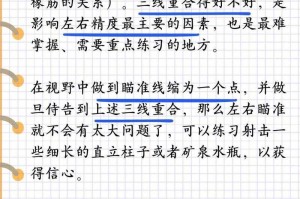 橡筋的关系）。三线重合得好不好，是
影响左右精度最主要的因素，也是最难
掌握、需要重点练习的地方。
在视野中做到瞄准线缩为一个点，并做
旦侍告到上述三线重合，那么左右瞄准
就不会有太大问题了，可以练习射击一
些细长的直立柱子或者矿泉水瓶，以获
得信心。